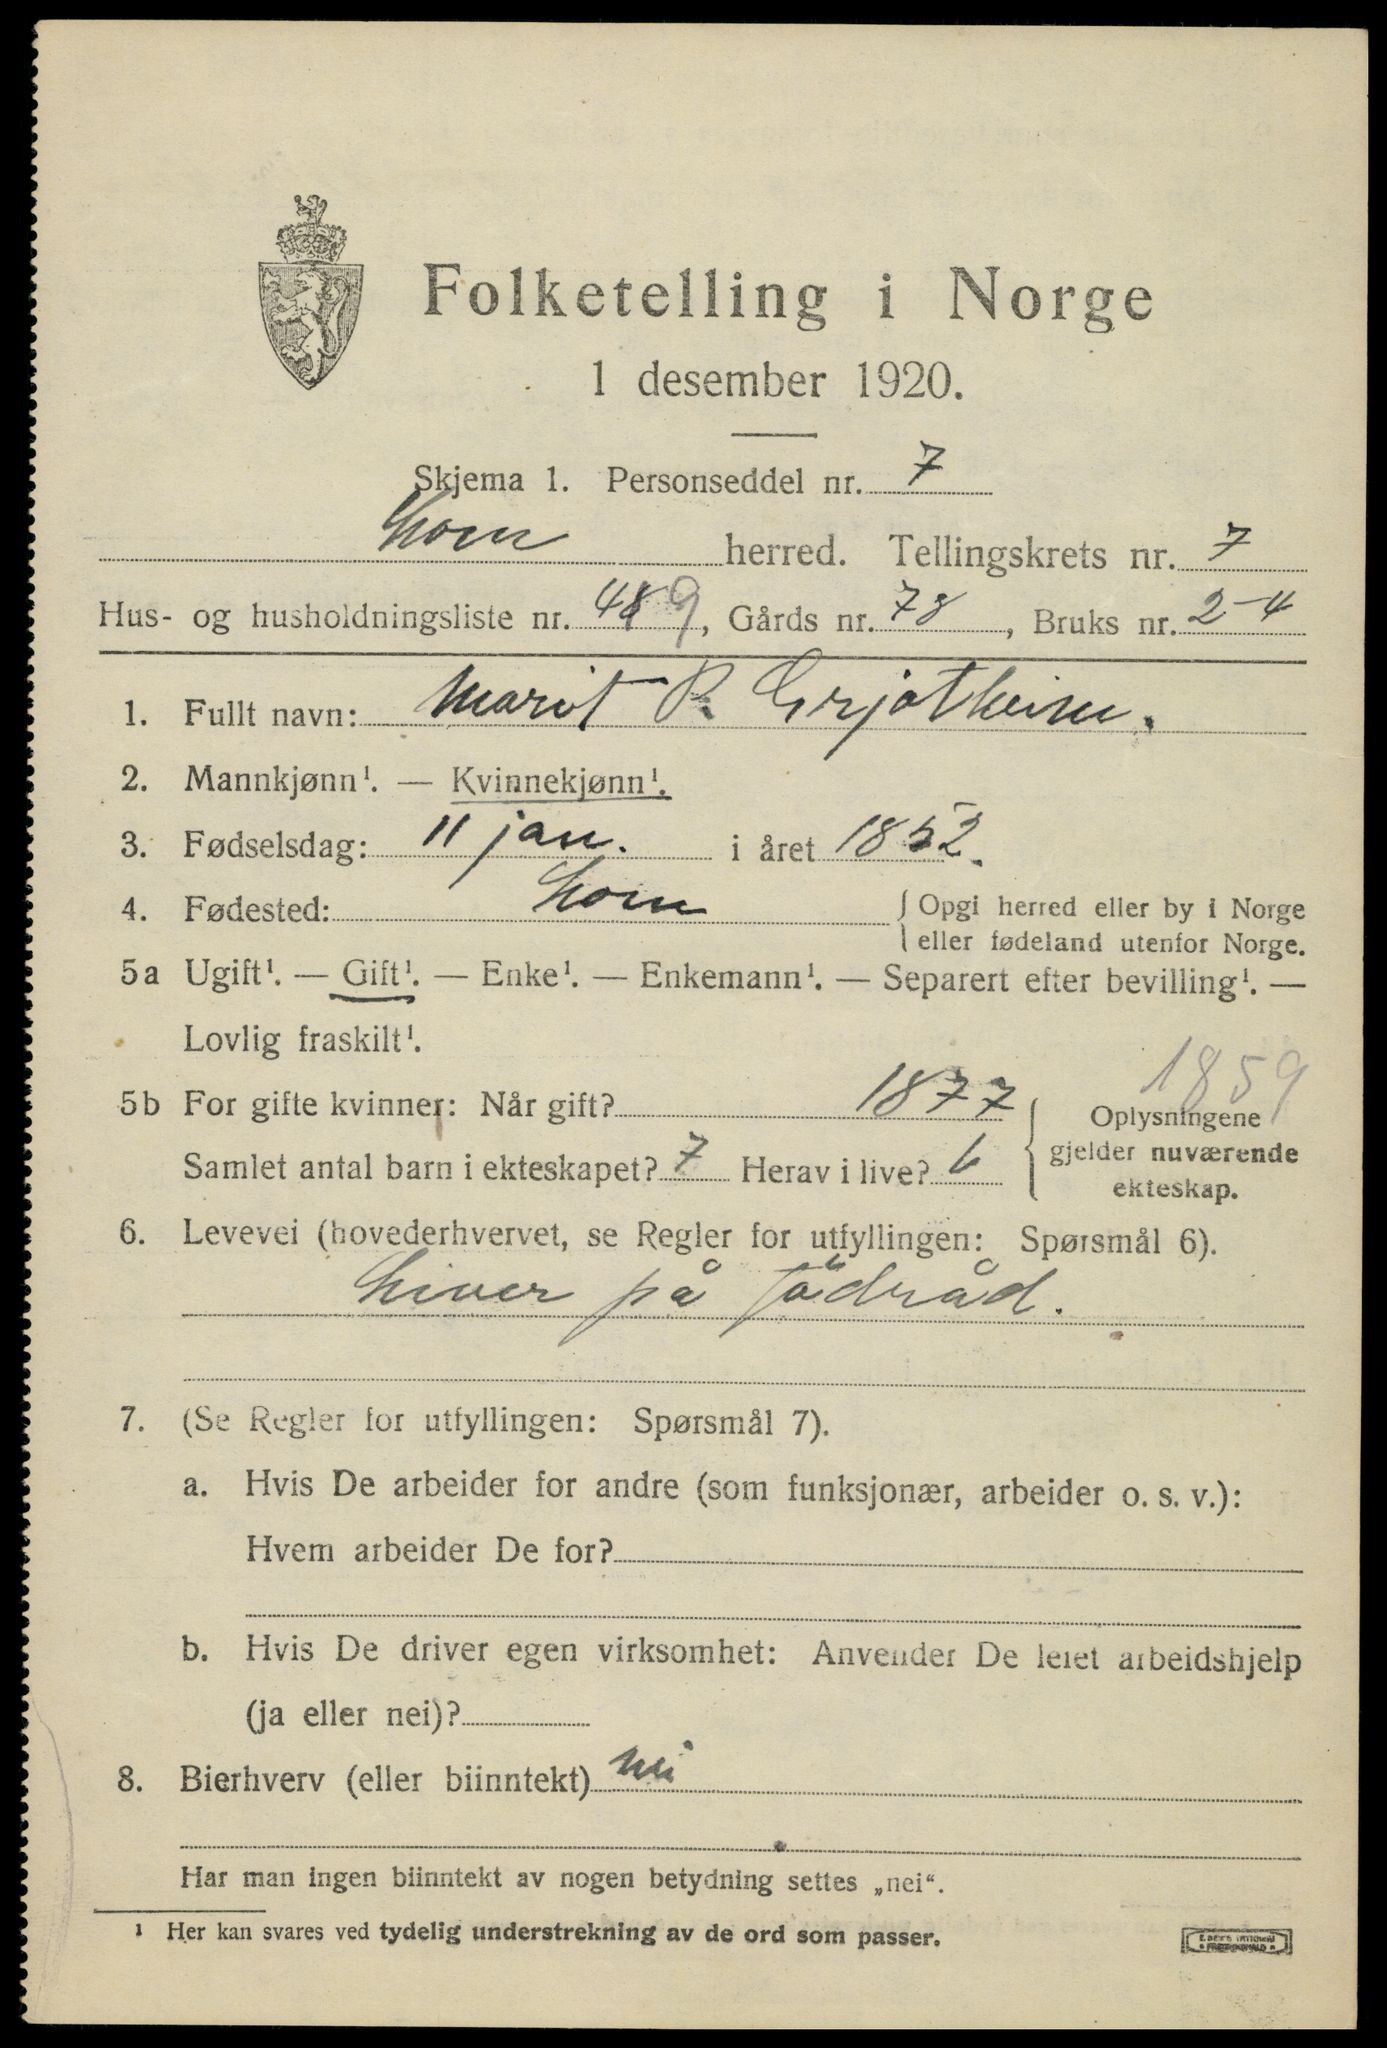 Folketelling i Norge
1 desember 1920.
Skjema 1. Personseddel nr. 7
Lom herred. Tellingskrets nr. 7
Hus- og husholdningsliste nr. 489, Gårds nr. 78, Bruks nr. 2-4
1. Fullt navn: Marit R. Grjotheim.
2. Mannkjønn¹. — Kvinnekjønn¹.
3. Fødselsdag: 11 jan. i året 1852.
4. Fødested: Lom { Opgi herred eller by i Norge
eller fødeland utenfor Norge.
5a Ugift¹. — Gift¹. — Enke¹. — Enkemann¹. — Separert efter bevilling¹. —
Lovlig fraskilt¹.
1859
5b For gifte kvinner: Når gift? 1877 Oplysningene
Samlet antal barn i ekteskapet? 7 Herav i live? 6 gjelder nuværende
ekteskap.
6. Levevei (hovederhvervet, se Regler for utfyllingen: Spørsmål 6).
Liver på födråd.
7. (Se Regler for utfyllingen: Spørsmål 7).
a. Hvis De arbeider for andre (som funksjonær, arbeider o. s. v.):
Hvem arbeider De for?
b. Hvis De driver egen virksomhet: Anvender De leiet arbeidshjelp
(ja eller nei)?
8. Bierhverv (eller biinntekt) nei
Har man ingen biinntekt av nogen betydning settes „nei“.
¹ Her kan svares ved tydelig understrekning av de ord som passer.